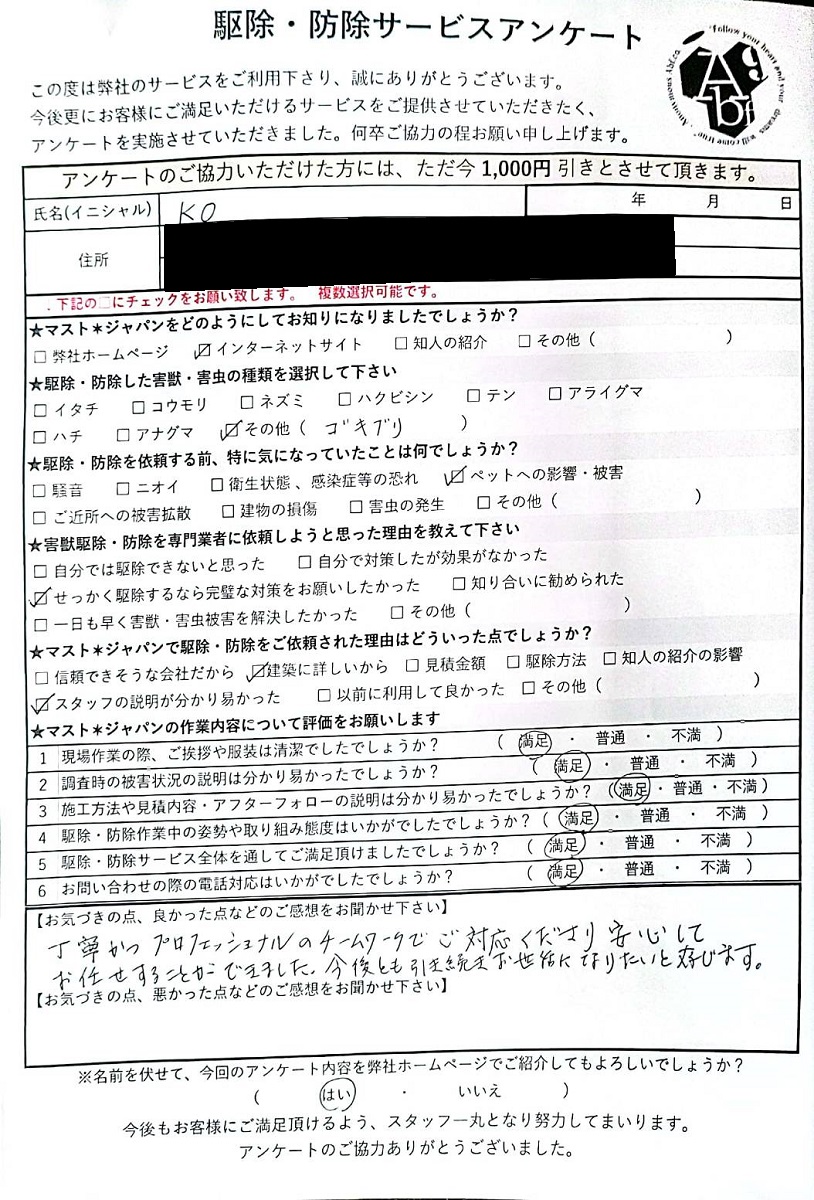 駆除・防除サービスアンケート
"follow your heart and your dreams will come true" Anonymous
A9
bf
この度は弊社のサービスをご利用下さり、誠にありがとうございます。
今後更にお客様にご満足いただけるサービスをご提供させていただきたく、
アンケートを実施させていただきました。何卒ご協力の程お願い申し上げます。
アンケートのご協力いただけた方には、ただ今 1,000円 引きとさせて頂きます。
氏名(イニシャル) KO 年 月 日
住所
．下記の□にチェックをお願い致します。 複数選択可能です。
★マスト＊ジャパンをどのようにしてお知りになりましたでしょうか？
□ 弊社ホームページ ☑ インターネットサイト □ 知人の紹介 □ その他（ ）
★駆除・防除した害獣・害虫の種類を選択して下さい
□ イタチ □ コウモリ □ ネズミ □ ハクビシン □ テン □ アライグマ
□ ハチ □ アナグマ ☑ その他（ ゴキブリ ）
★駆除・防除を依頼する前、特に気になっていたことは何でしょうか？
□ 騒音 □ ニオイ □ 衛生状態、感染症等の恐れ ☑ ペットへの影響・被害
□ ご近所への被害拡散 □ 建物の損傷 □ 害虫の発生 □ その他（ ）
★害獣駆除・防除を専門業者に依頼しようと思った理由を教えて下さい
□ 自分では駆除できないと思った □ 自分で対策したが効果がなかった
☑ せっかく駆除するなら完璧な対策をお願いしたかった □ 知り合いに勧められた
□ 一日も早く害獣・害虫被害を解決したかった □ その他（ ）
★マスト＊ジャパンで駆除・防除をご依頼された理由はどういった点でしょうか？
□ 信頼できそうな会社だから ☑ 建築に詳しいから □ 見積金額 □ 駆除方法 □ 知人の紹介の影響
☑ スタッフの説明が分かり易かった □ 以前に利用して良かった □ その他（ ）
★マスト＊ジャパンの作業内容について評価をお願いします
1 現場作業の際、ご挨拶や服装は清潔でしたでしょうか？ （ 満足 ・ 普通 ・ 不満 ）
2 調査時の被害状況の説明は分かり易かったでしょうか？ （ 満足 ・ 普通 ・ 不満 ）
3 施工方法や見積内容・アフターフォローの説明は分かり易かったでしょうか？（満足・普通・不満）
4 駆除・防除作業中の姿勢や取り組み態度はいかがでしたでしょうか？（ 満足 ・ 普通 ・ 不満 ）
5 駆除・防除サービス全体を通してご満足頂けましたでしょうか？ （ 満足 ・ 普通 ・ 不満 ）
6 お問い合わせの際の電話対応はいかがでしたでしょうか？ （ 満足 ・ 普通 ・ 不満 ）
【お気づきの点、良かった点などのご感想をお聞かせ下さい】
丁寧かつプロフェッショナルのチームワークでご対応くださり安心して
お任せすることができました。今後とも引き続きお世話になりたいと存じます。
【お気づきの点、悪かった点などのご感想をお聞かせ下さい】
※名前を伏せて、今回のアンケート内容を弊社ホームページでご紹介してもよろしいでしょうか？
（ はい ・ いいえ ）
今後もお客様にご満足頂けるよう、スタッフ一丸となり努力してまいります。
アンケートのご協力ありがとうございました。